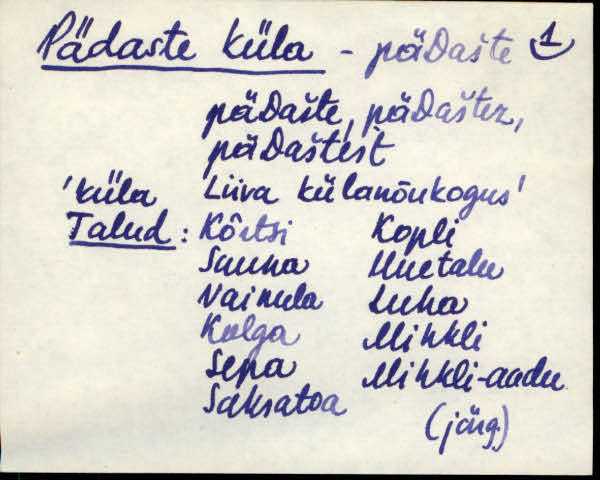 Pädaste küla - päDašte 1
päDašte, päDaštez,
päDaštest
'küla Liiva külanõukogus'
Talud: Kõrtsi Kopli
Sauna Uuetalu
Vainula Luha
Kolga Mihkli
Sepa Mihkli-aadu
Saksatoa (järg.)